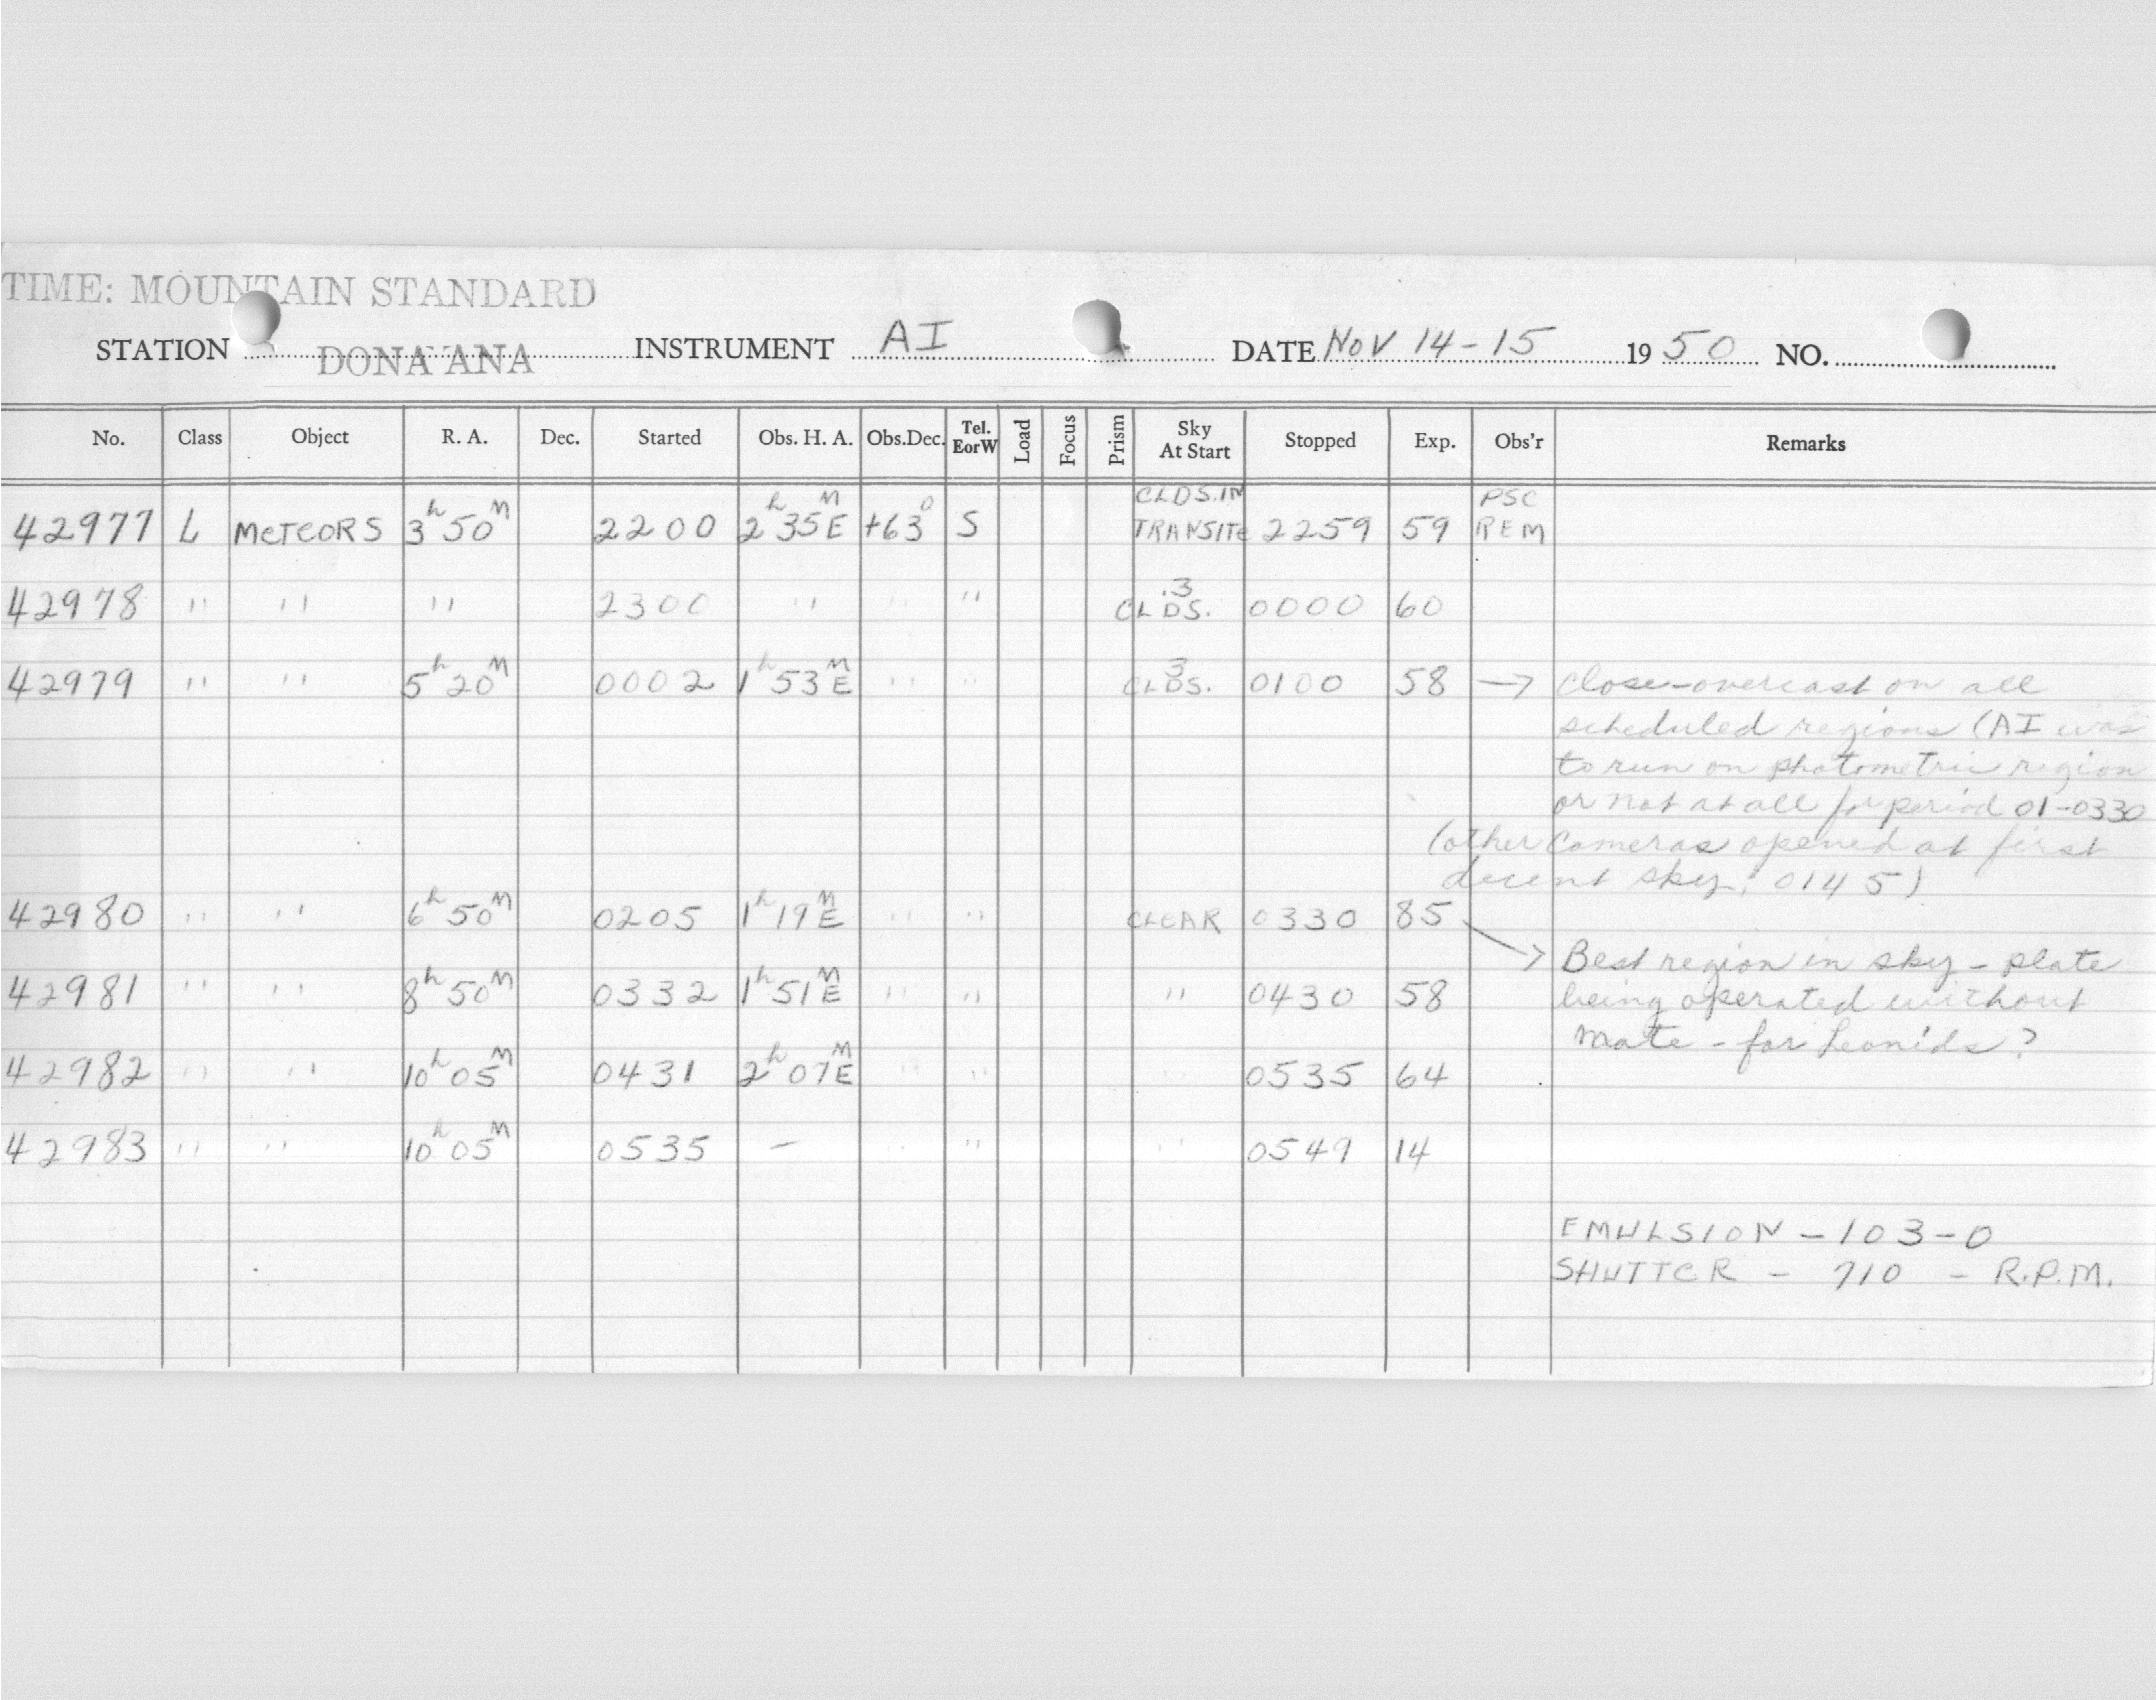 TIME: MOUNTAIN STANDARD
STATION DONA ANA INSTRUMENT AI DATE NOV 14-15 19 50 NO.
No. Class Object R. A. Dec. Started Obs. H. A. Obs.Dec. Tel. EorW Load Focus Prism Sky At Start Stopped Exp. Obs'r Remarks
42977 L METEORS 3h 50m 2200 2h 35m E +63° S CLDS.IN TRANSITE 2259 59 PSC REM
42978 " " " 2300 " " " .3 CLDS. 0000 60
42979 " " 5h 20m 0002 1h 53m E " " 3 CLDS. 0100 58 → Close-overcast on all
scheduled regions (AI was
to run on photometric region
or not at all for period 01-0330
(other cameras opened at first
decent sky, 0145)
42980 " " 6h 50m 0205 1h 19m E " " CLEAR 0330 85
→ Best region in sky - plate
42981 " " 8h 50m 0332 1h 51m E " " " 0430 58 being operated without
mate - for Leonids?
42982 " " 10h 05m 0431 2h 07m E " " " 0535 64
42983 " " 10h 05m 0535 - " " 0549 14
EMULSION - 103-O
SHUTTER - 710 - R.P.M.